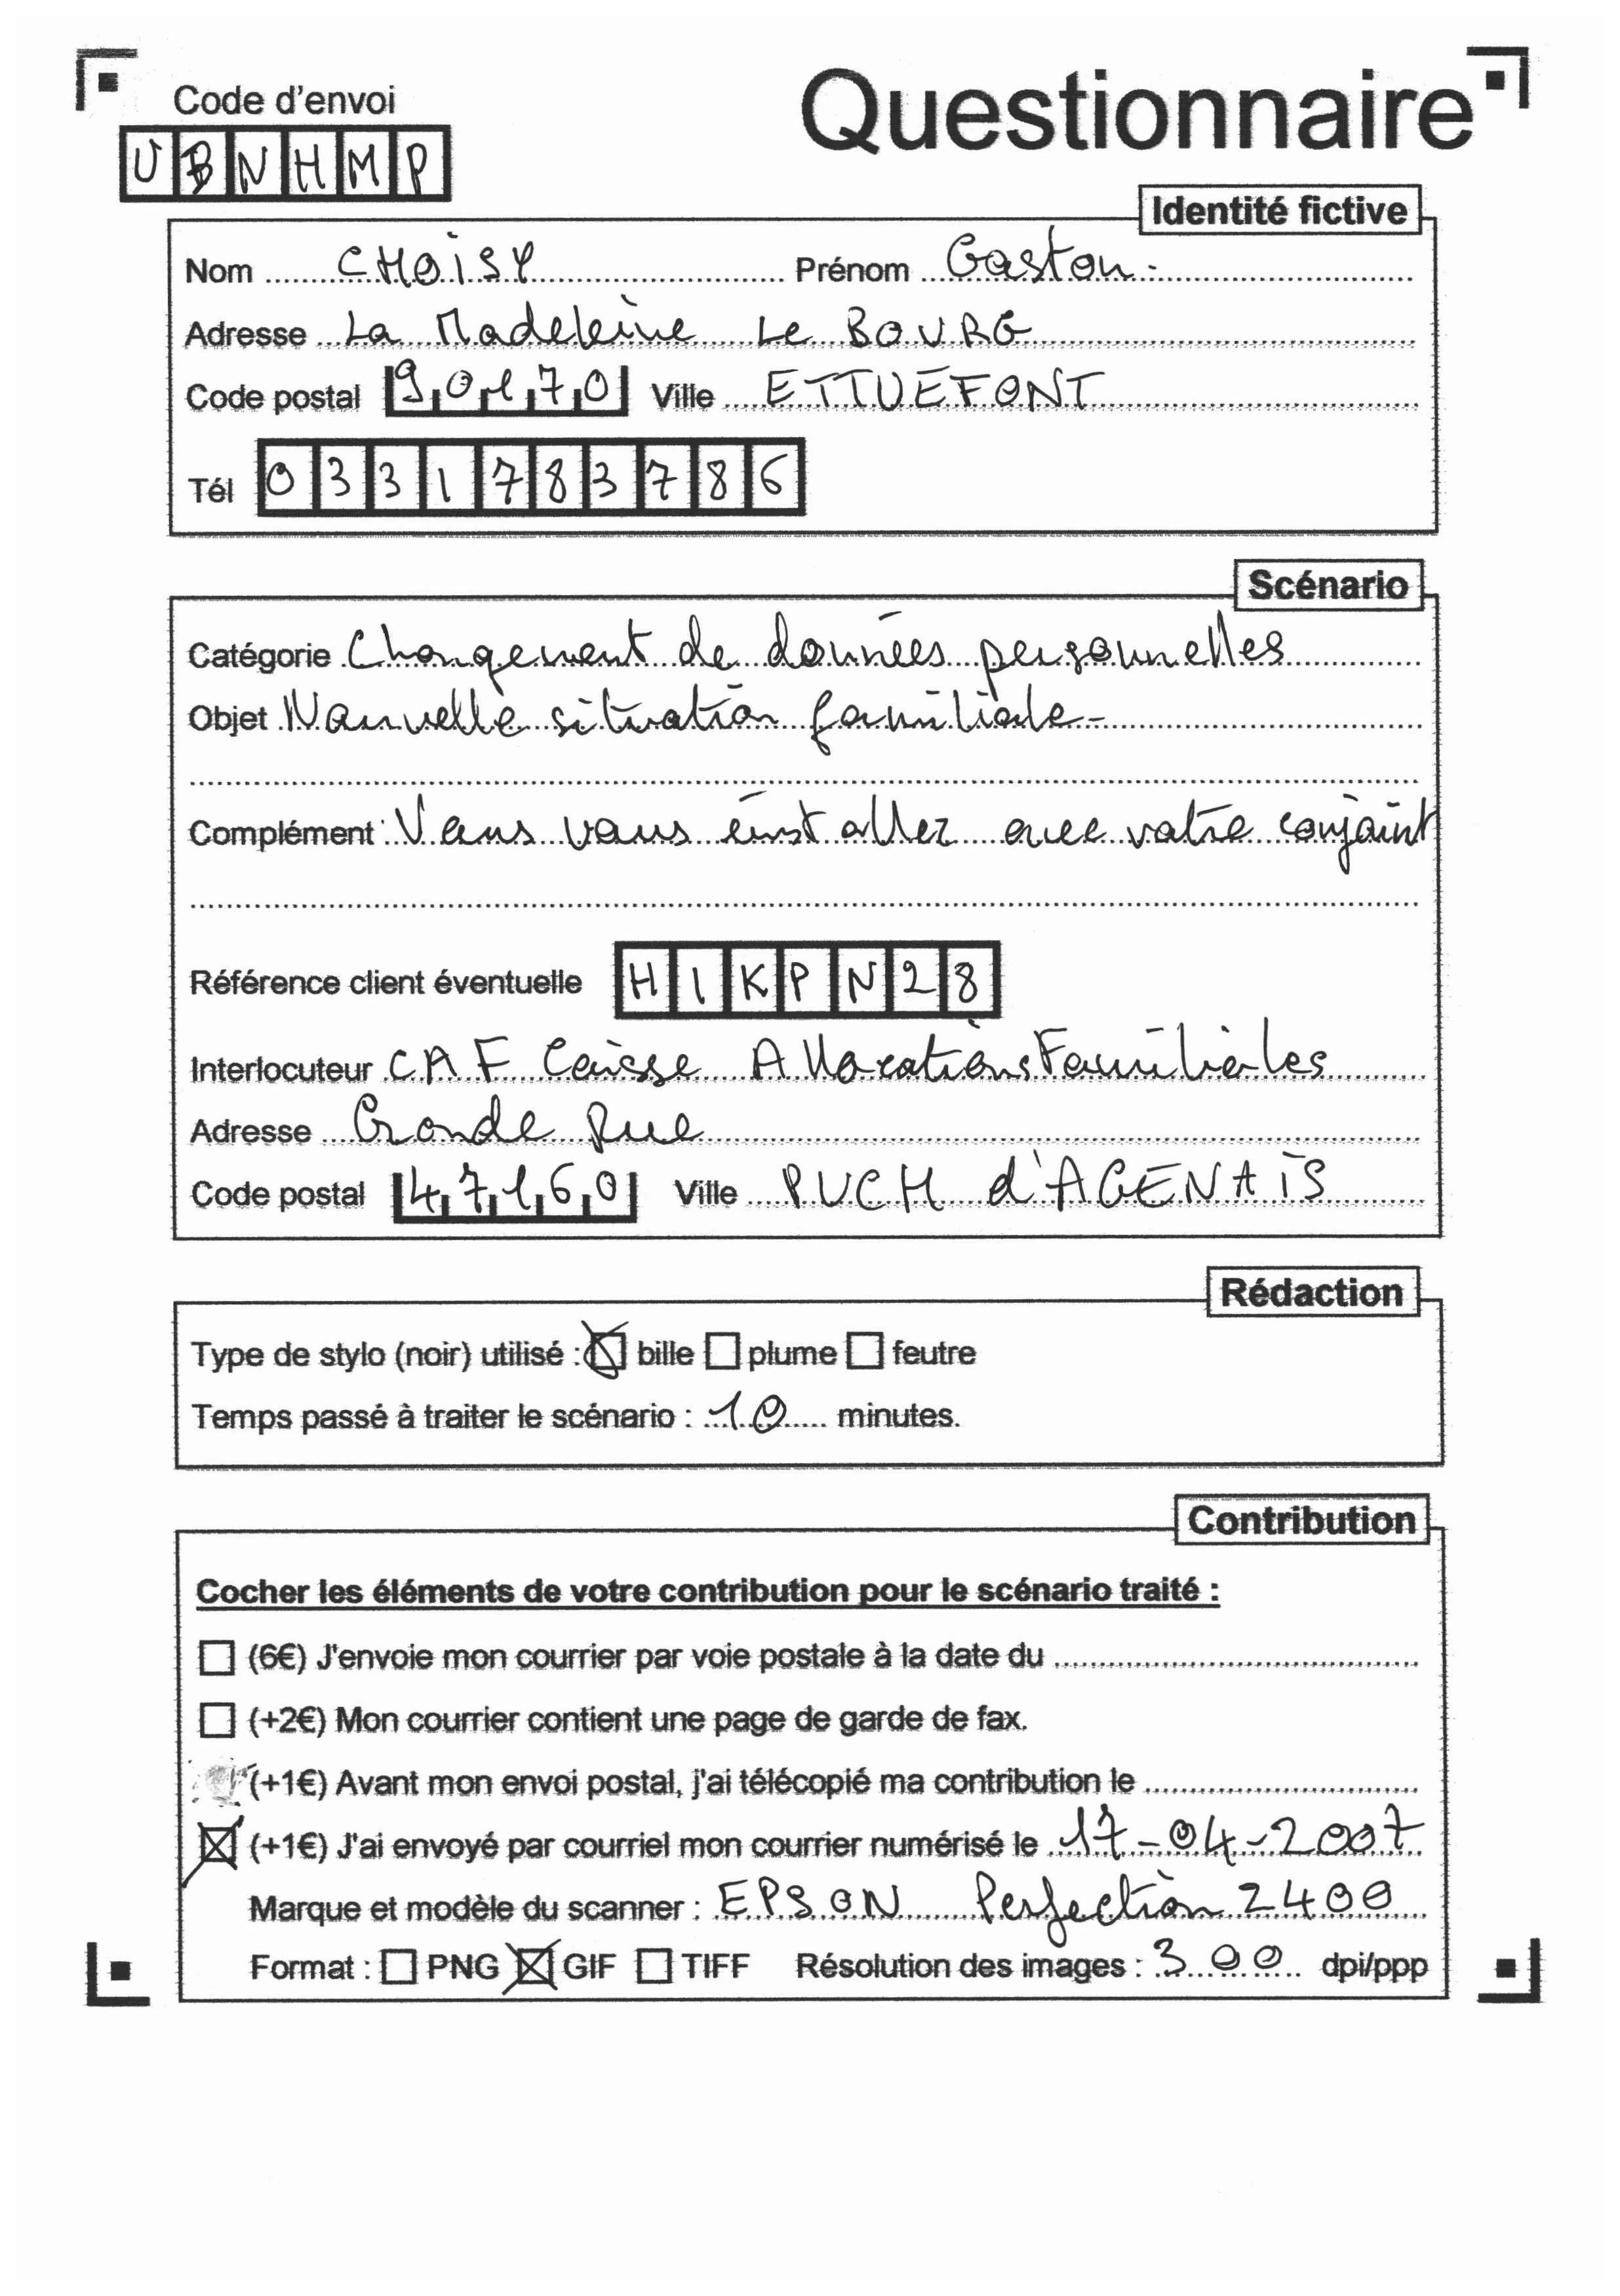 Code d'envoi
Questionnaire
UBNHMP
Identité fictive
Nom CHOISY Prénom Gaston
Adresse La Madeleine Le BOURG
Code postal 90170 Ville ETTUEFONT
Tél 0331783786
Scénario
Catégorie Changement de données personnelles
Objet Nouvelle situation familiale
Complément : Vous vous installez avec votre conjoint
Référence client éventuelle HIKPN28
Interlocuteur CAF Caisse Allocations Familiales
Adresse Grande Rue
Code postal 47160 Ville PUCH d'AGENAIS
Rédaction
Type de stylo (noir) utilisé : bille plume feutre
Temps passé à traiter le scénario : 10 minutes.
Contribution
Cocher les éléments de votre contribution pour le scénario traité :
(6€) J'envoie mon courrier par voie postale à la date du
(+2€) Mon courrier contient une page de garde de fax.
(+1€) Avant mon envoi postal, j'ai télécopié ma contribution le
(+1€) J'ai envoyé par courriel mon courrier numérisé le 17-04-2007
Marque et modèle du scanner : EPSON Perfection 2400
Format : PNG GIF TIFF Résolution des images : 300 dpi/ppp